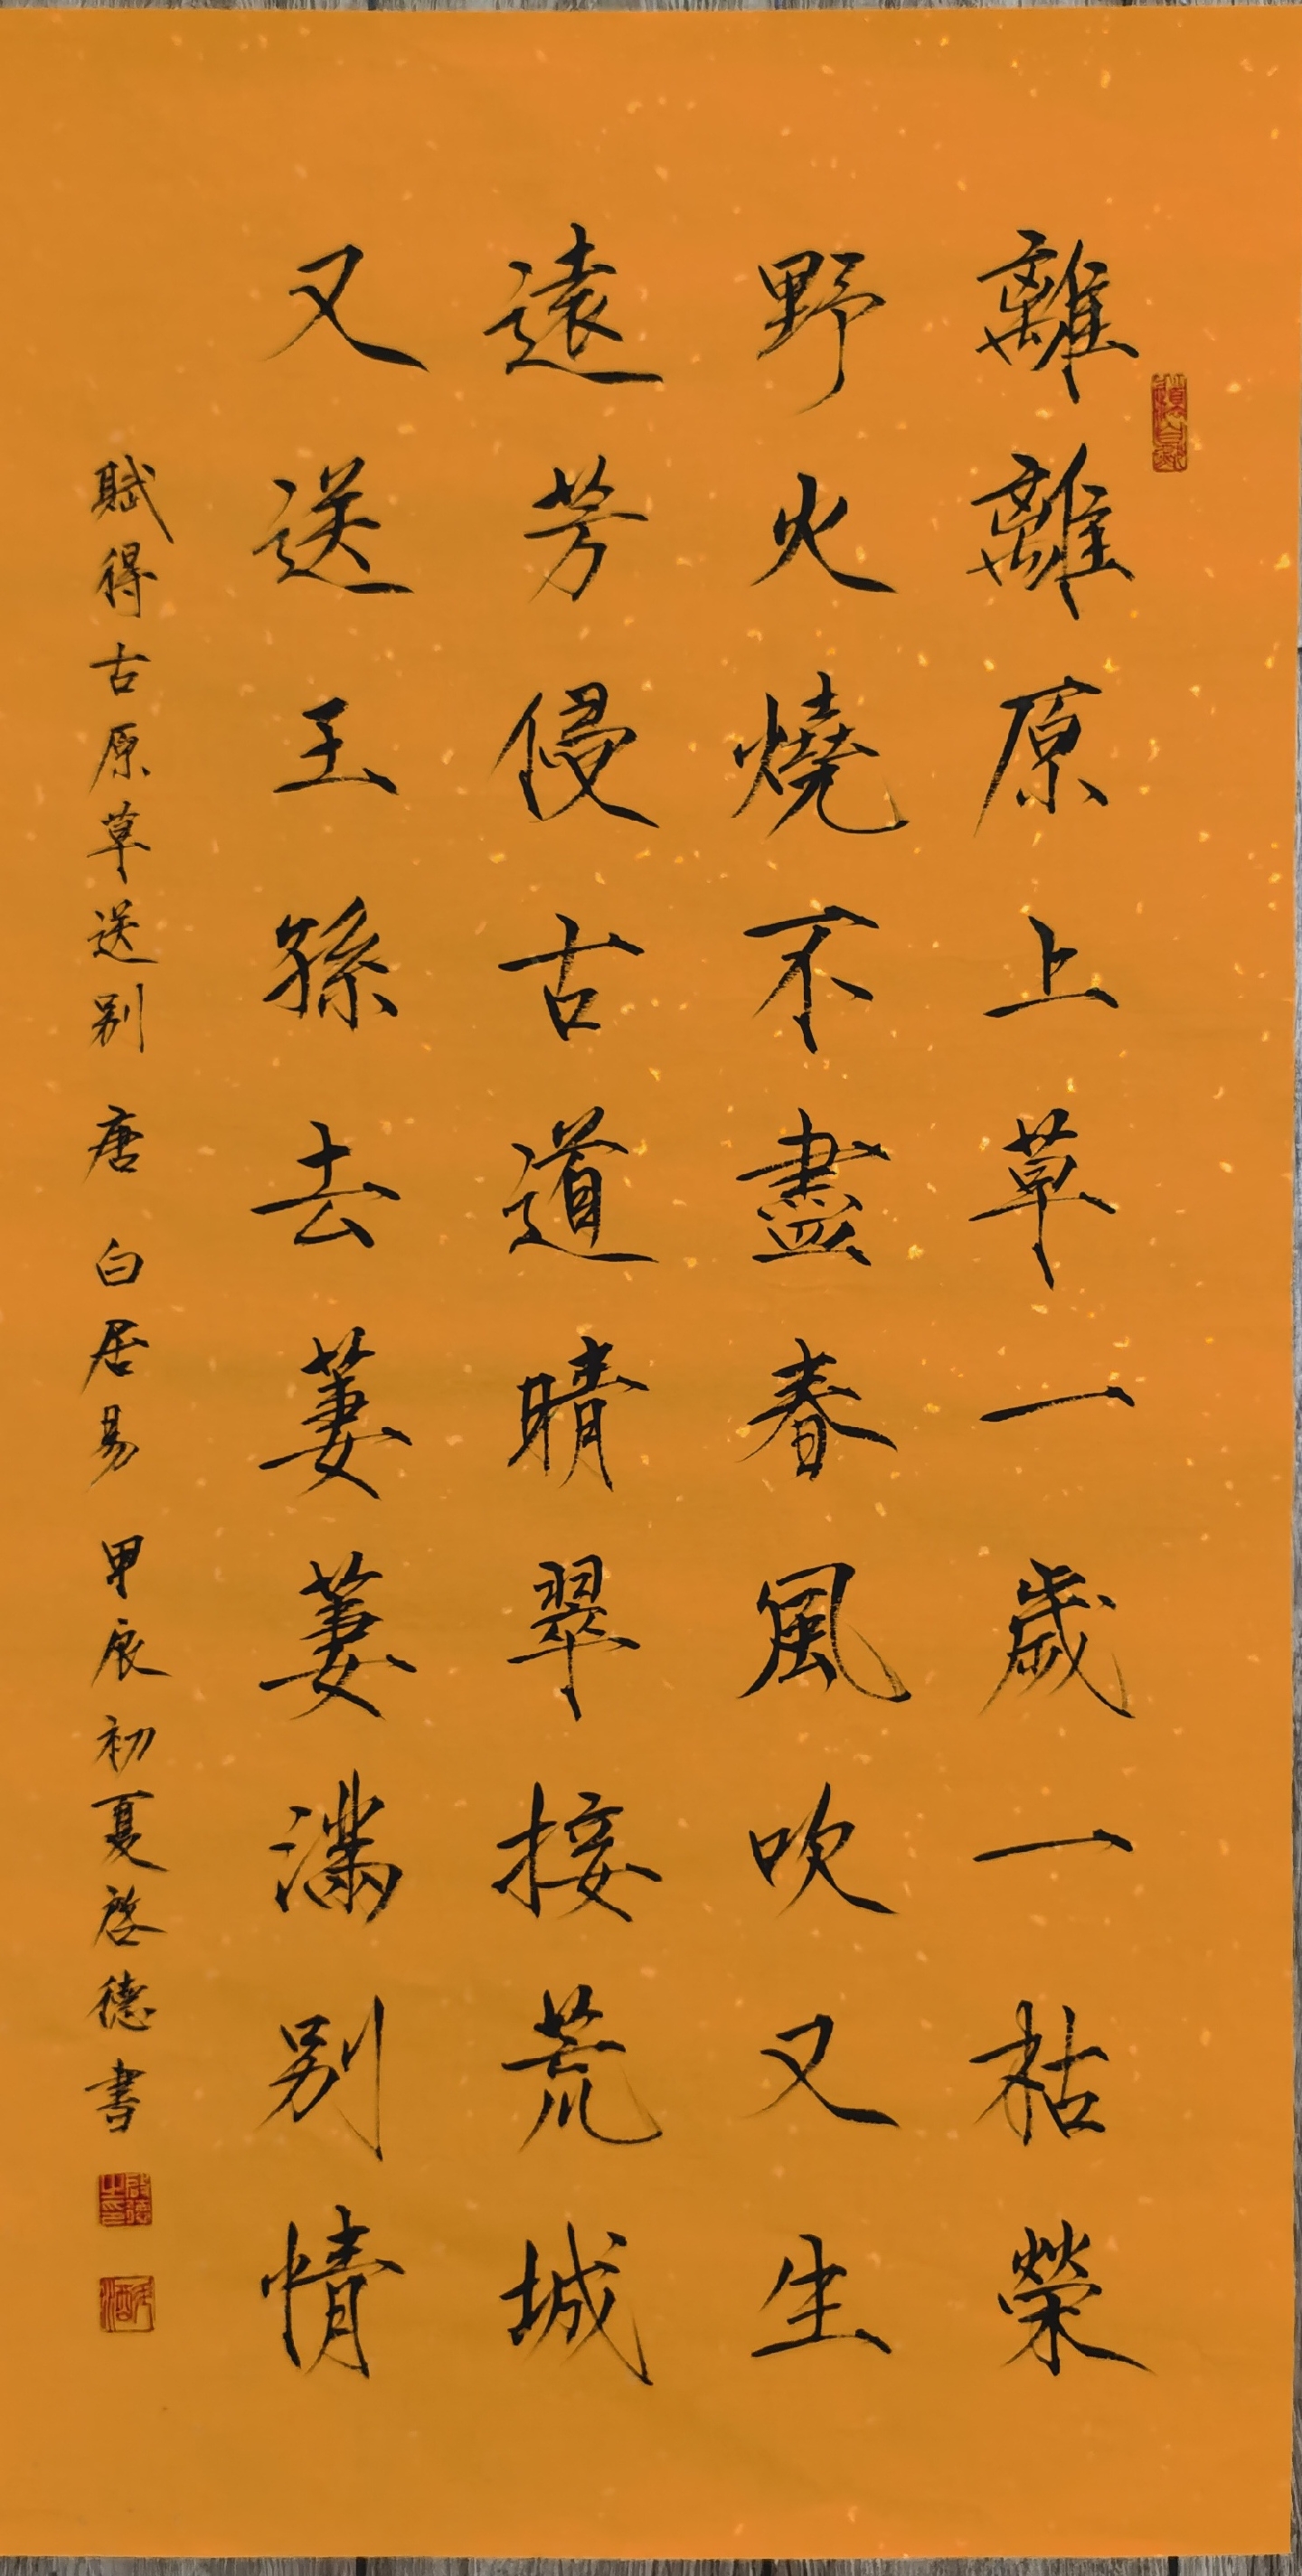 離離原上草一歲一枯榮
野火燒不盡春風吹又生
遠芳侵古道晴翠接荒城
又送王孫去萋萋滿別情
賦得古原草送别 唐 白居易 甲辰初夏啓德書
啓德之印